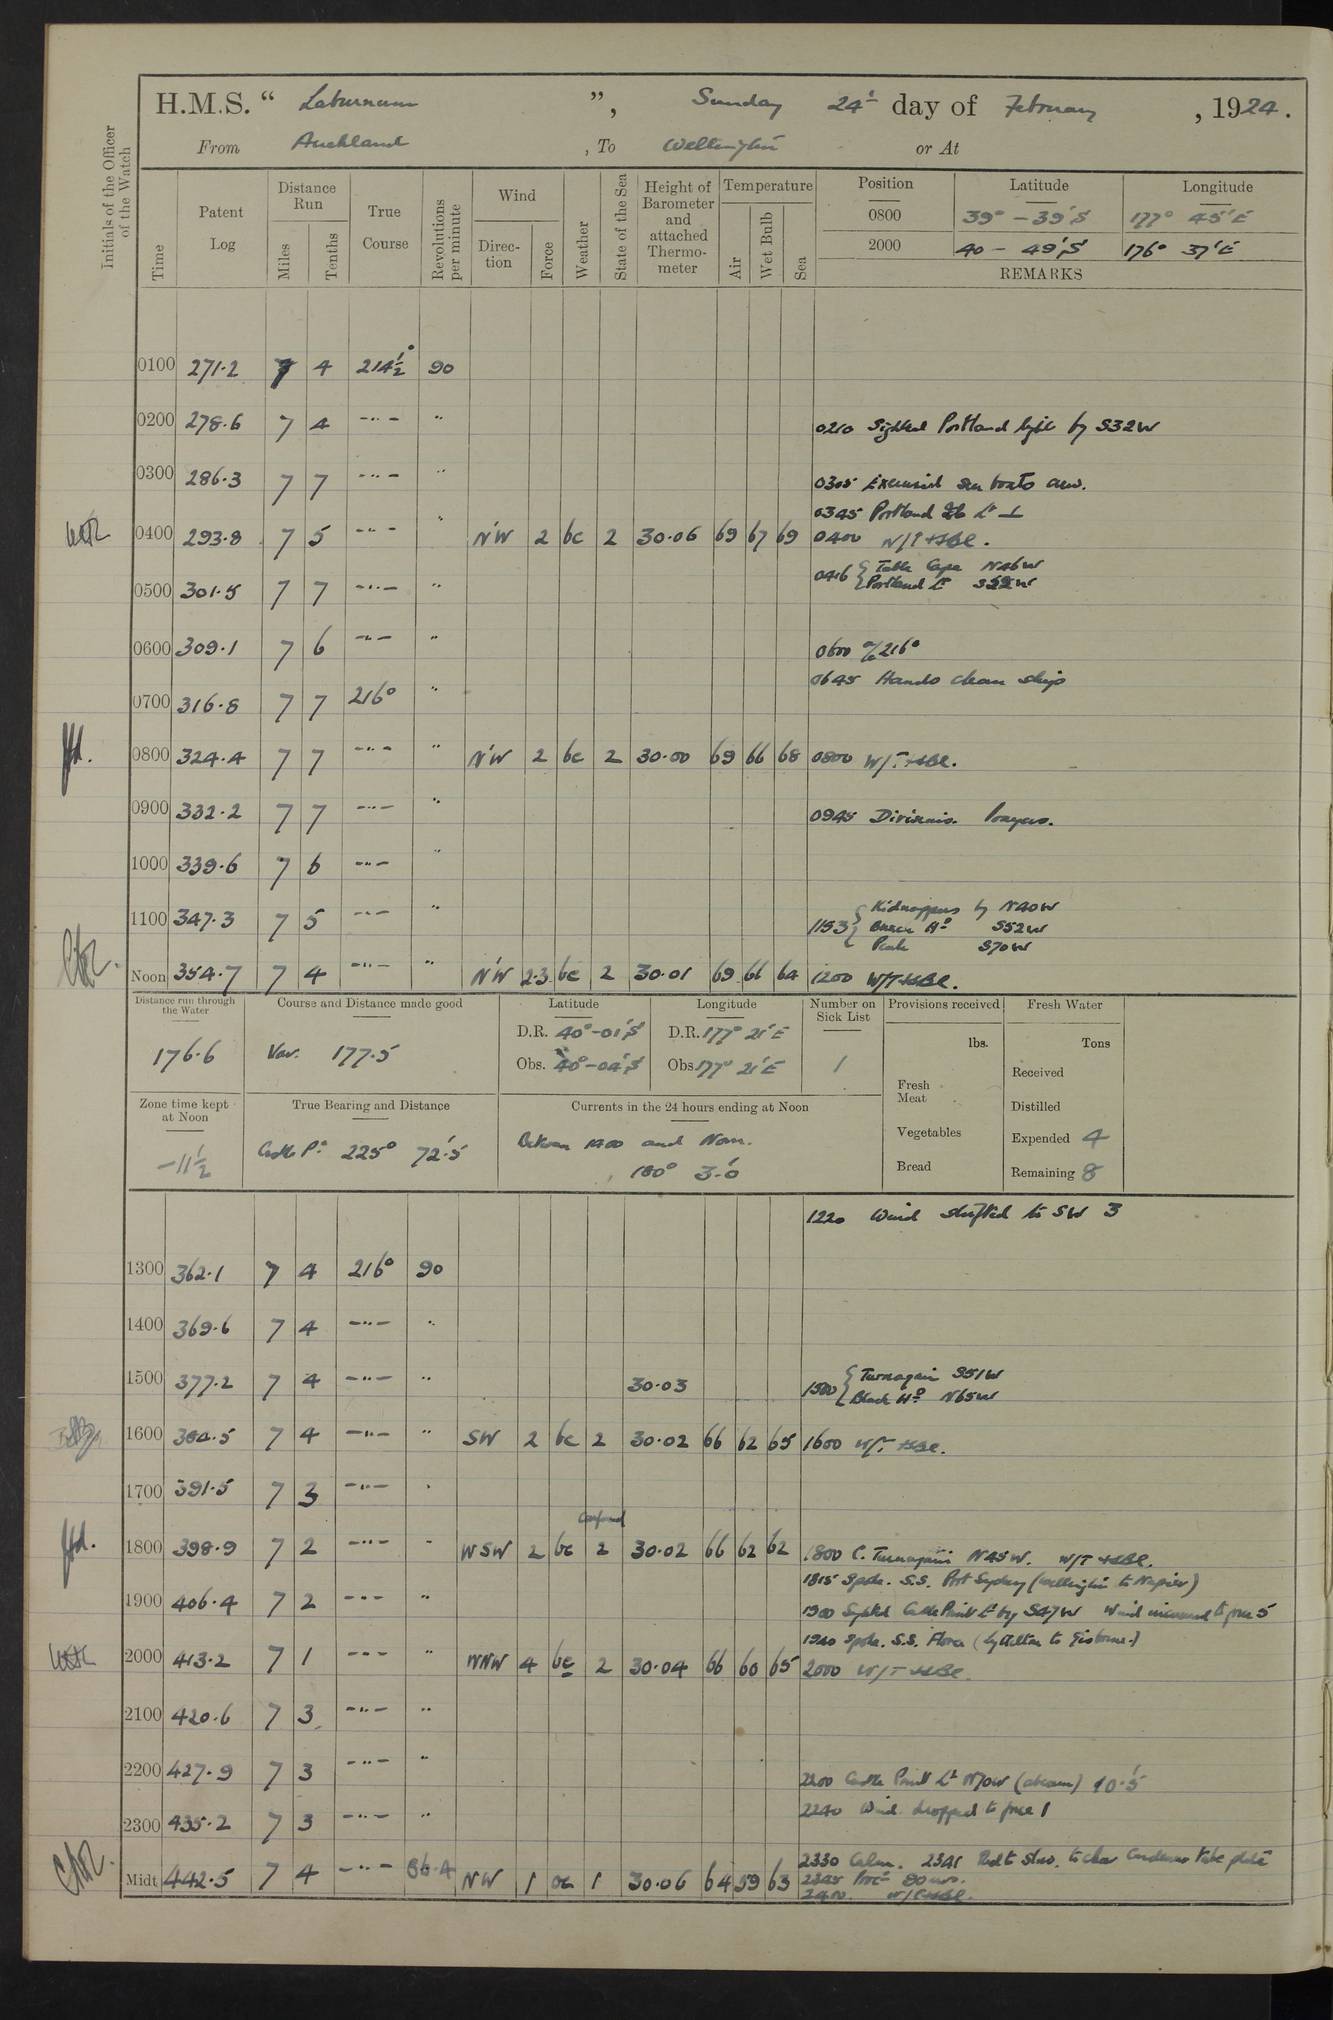 H.M.S. “ Laburnum ”, Sunday 24th day of February , 1924.
From Auckland , To Wellington or At
Initials of the Officer of the Watch
Time
Patent Log
Distance Run
Miles
Tenths
True Course
Revolutions per minute
Wind
Direction
Force
Weather
State of the Sea
Height of Barometer and attached Thermometer
Temperature
Air
Wet Bulb
Sea
Position Latitude Longitude
0800 39° - 39' S 177° 45' E
2000 40 - 49' S 176° 37' E
REMARKS
0100 271.2 7 4 214½° 90
0200 278.6 7 4 -"- " 0210 Sighted Portland light by S32W
0300 286.3 7 7 -"- " 0305 Exercised sea boats crew.
0345 Portland Id Lt ⊥
0400 293.8 7 5 -"- " N'W 2 bc 2 30.06 69 67 69 0400 W/T HBL.
0416 { Table Cape N46W
{ Portland Lt
0500 301.5 7 7 -"- "
0600 309.1 7 6 -"- " 0600 a/c 216°
0645 Hands clean ship
0700 316.8 7 7 216° "
0800 324.4 7 7 -"- " N'W 2 bc 2 30.00 69 66 68 0800 W/T HBL.
0900 332.2 7 7 -"- " 0945 Divisions. Prayers.
1000 339.6 7 6 -"- "
1100 347.3 7 5 -"- " 1153 { Kidnappers by N40W
S52W
Peak S70W
Noon 354.7 7 4 -"- " N'W 2.3 bc 2 30.01 69 66 64 1200 W/T HBL.
Distance run through the Water
176.6
Course and Distance made good
Var. 177.5
Latitude
D.R. 40° - 01' S
Obs. 40° - 04' S
Longitude
D.R. 177° 21' E
Obs 177° 21' E
Number on Sick List
1
Provisions received
lbs.
Fresh Meat
Vegetables
Bread
Fresh Water
Tons
Received
Distilled
Expended 4
Remaining 8
Zone time kept at Noon
-11½
True Bearing and Distance
Castle Pt. 225° 72'.5
Currents in the 24 hours ending at Noon
Between 1400 and Noon.
180° 3'.0
1220 Wind shifted to SW 3
1300 362.1 7 4 216° 90
1400 369.6 7 4 -"- "
1500 377.2 7 4 -"- " 30.03 1500 { Turnagain S51W
{ Black Hd N65W
1600 384.5 7 4 -"- " SW 2 bc 2 30.02 66 62 65 1600 W/T HBL.
1700 391.5 7 3 -"- "
Confused
1800 398.9 7 2 -"- " WSW 2 bc 2 30.02 66 62 62 1800 C. Turnagain N45W. W/T HBL.
1815 Spoke. S.S. Port Sydney (Wellington to Napier)
1900 406.4 7 2 -"- " 1900 Sighted Castle Point Lt by S47W Wind increased to force 5
1940 Spoke. S.S. Flora (Lyttelton to Gisborne.)
2000 413.2 7 1 -"- " WNW 4 bc 2 30.04 66 60 65 2000 W/T HBL.
2100 420.6 7 3 -"- "
2200 427.9 7 3 -"- " 2200 Castle Point Lt N70W (abeam) 10'.5
2240 Wind dropped to force 1
2300 435.2 7 3 -"- "
2330 Calm. 2341 Redd slow. to clear Condenser tube plate
Midt 442.5 7 4 -"- 86.4 NW 1 bc 1 30.06 64 59 63 2345 Procd 90 revs.
2400. W/T HBL.